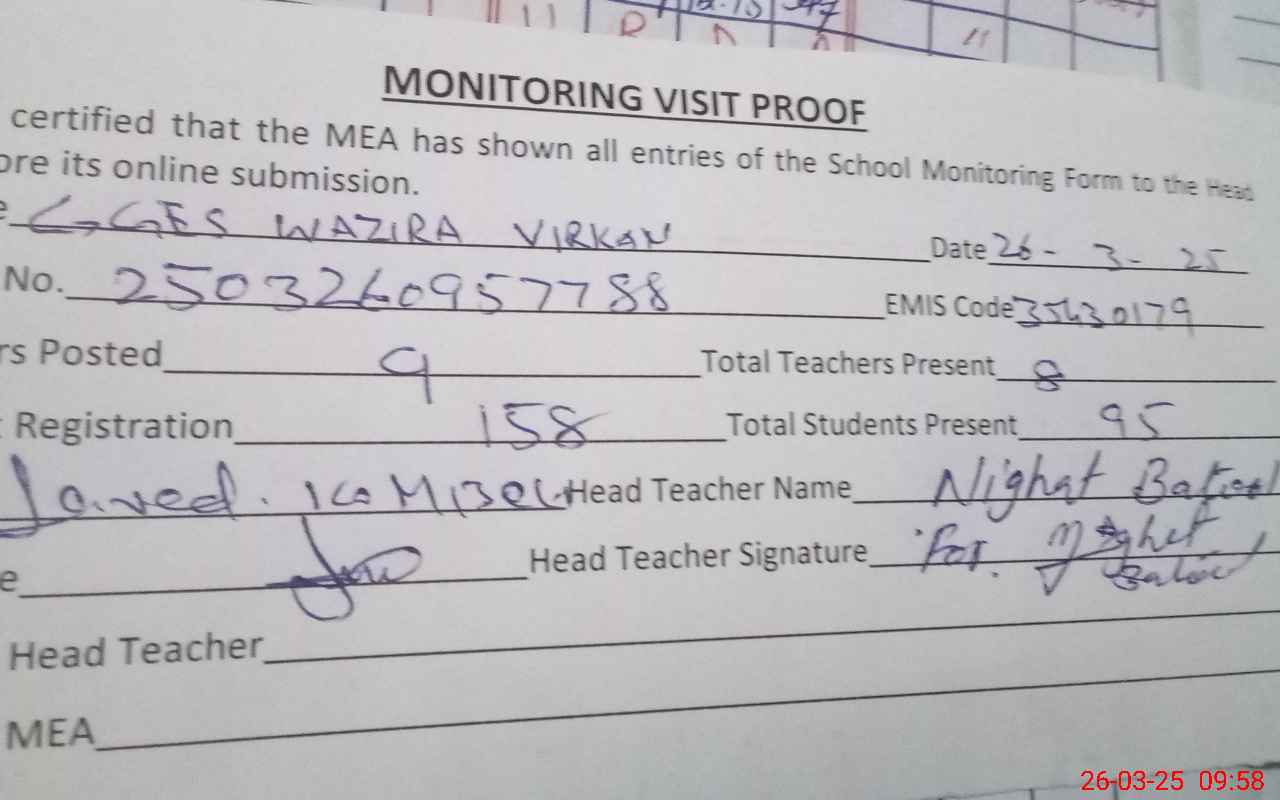 MONITORING VISIT PROOF
certified that the MEA has shown all entries of the School Monitoring Form to the Head
ore its online submission.
e GGES WAZIRA VIRKAN Date 26 - 3 - 25
No. 2503260957788 EMIS Code 35430179
rs Posted 9 Total Teachers Present 8
Registration 158 Total Students Present 95
Javed. Head Teacher Name Nighat Batool
e Head Teacher Signature For. Nighat Batool
Head Teacher
MEA
26-03-25 09:58